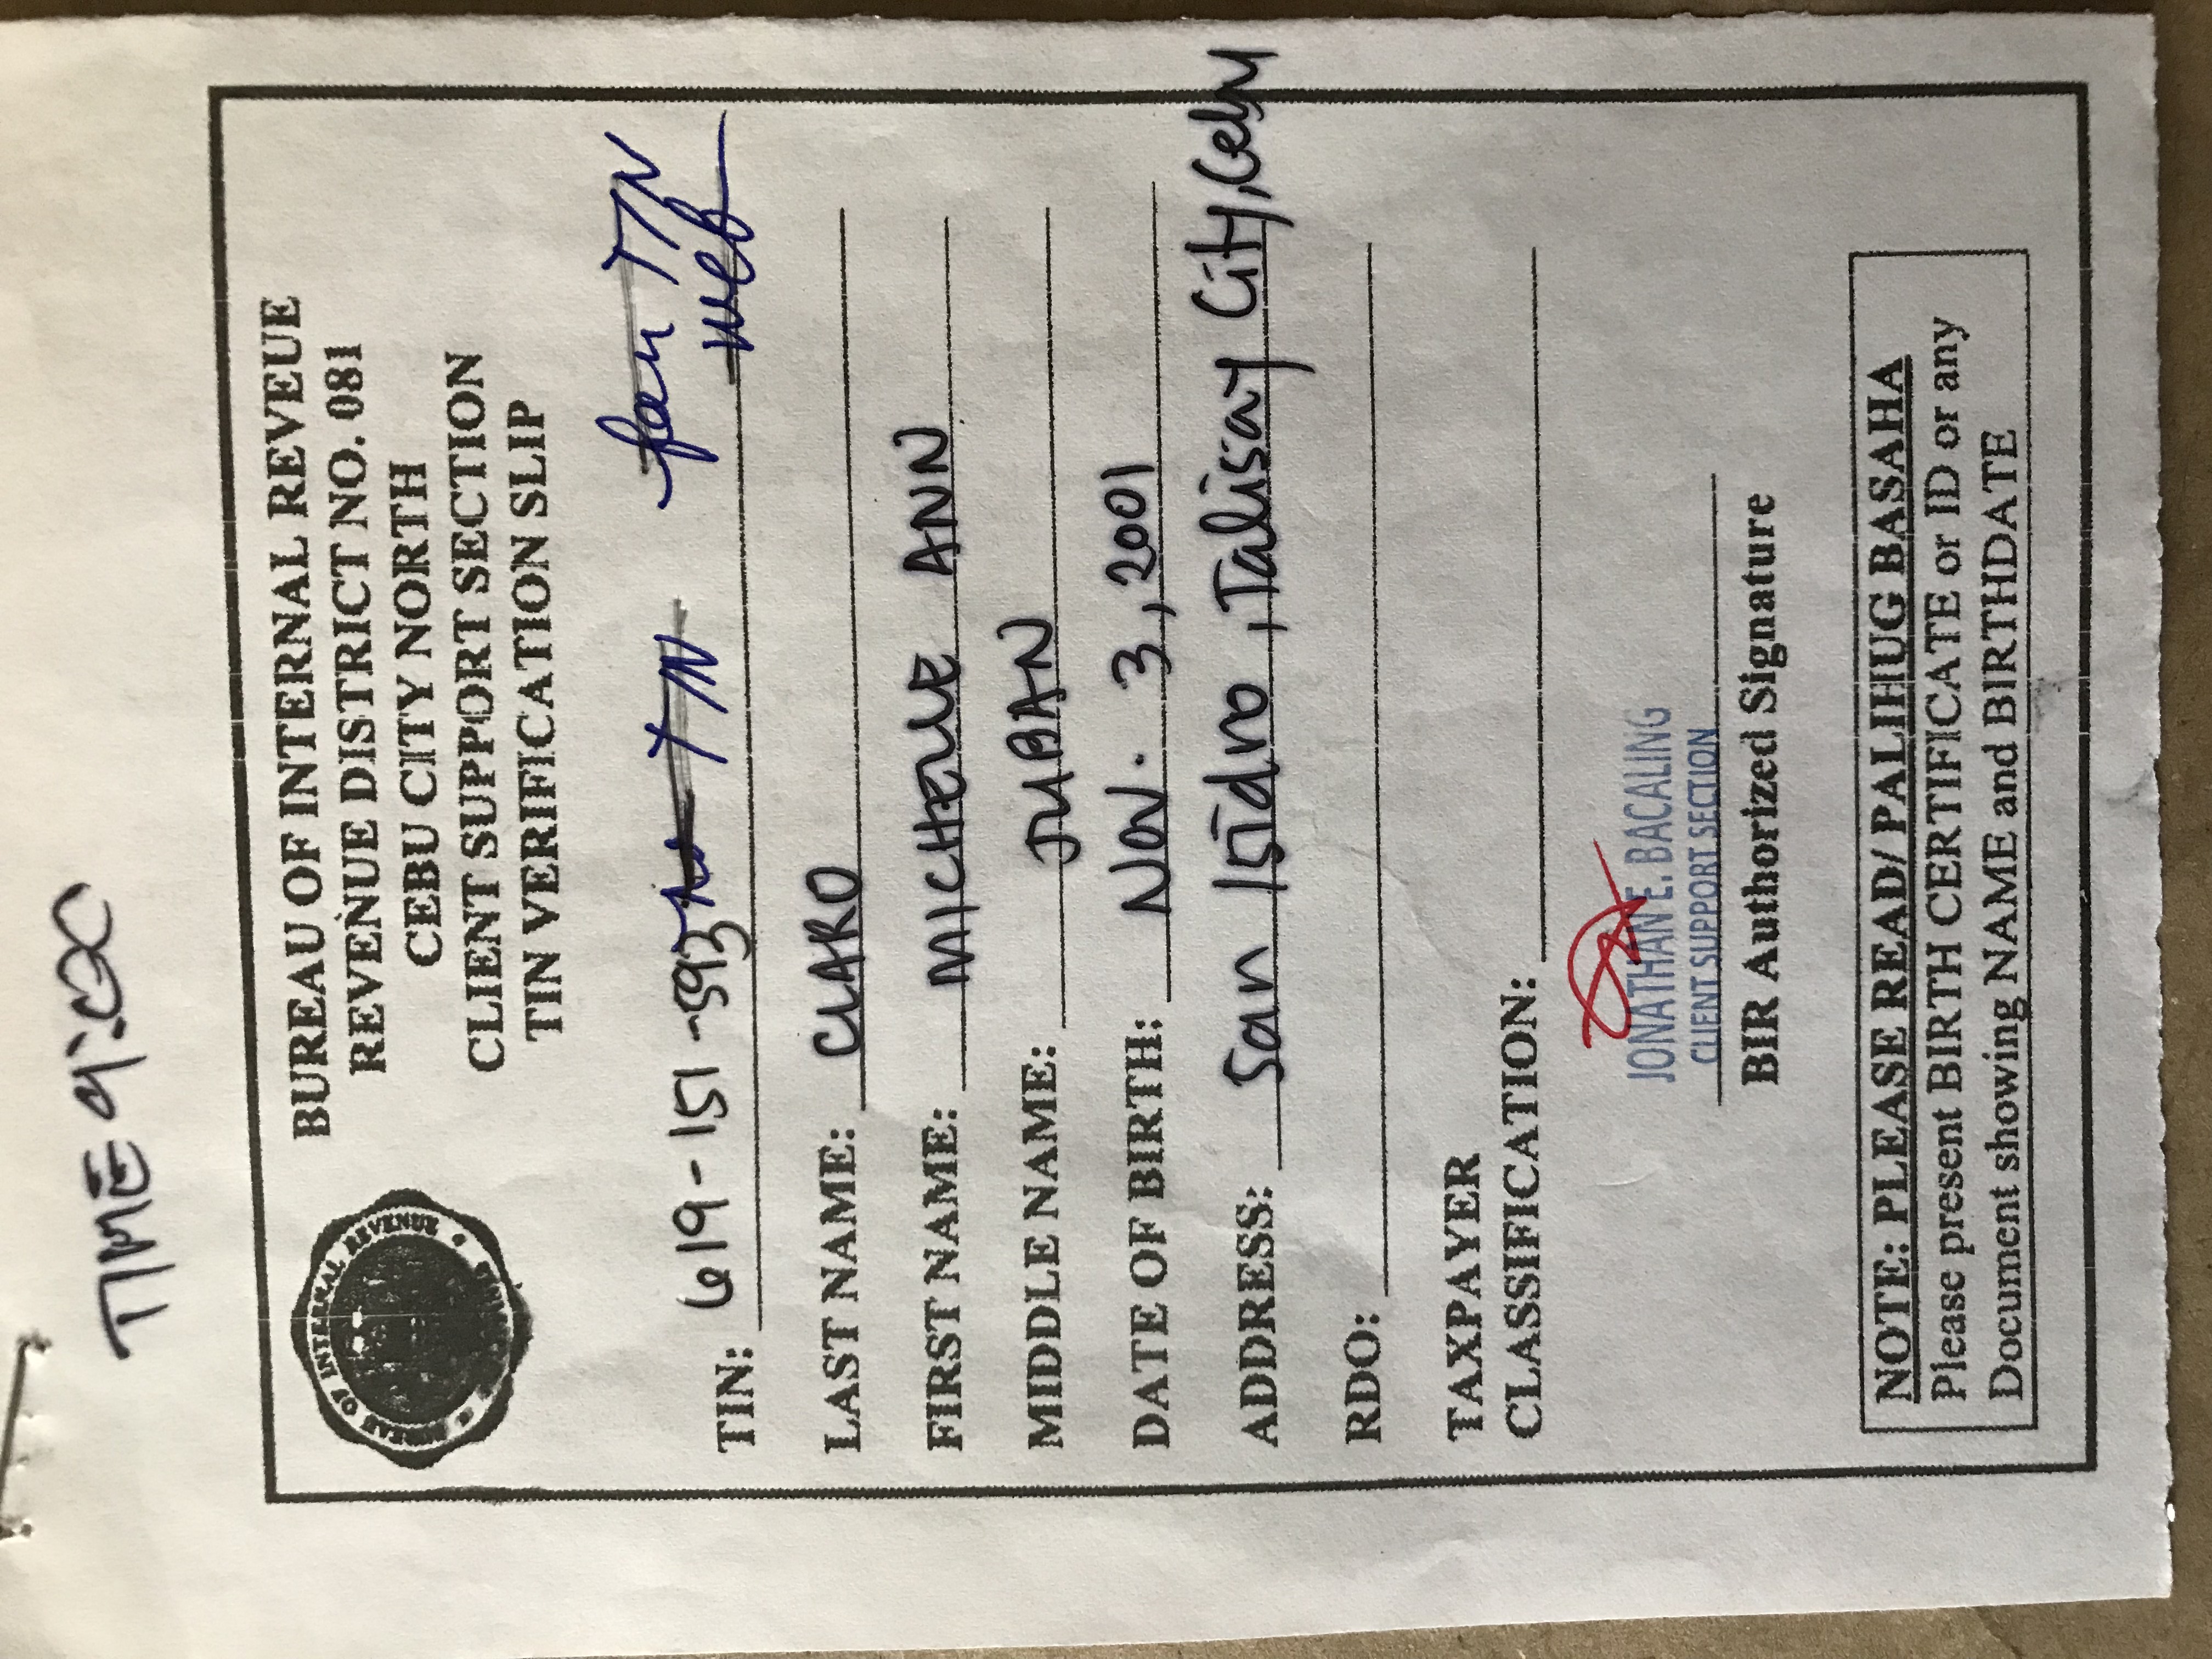 TIME 9:
BUREAU OF INTERNAL REVEUE
REVENUE DISTRICT NO. 081
CEBU CITY NORTH
CLIENT SUPPORT SECTION
TIN VERIFICATION SLIP
BUREAU OF INTERNAL REVENUE
TIN: 619-151-593 TIN per TIN web
LAST NAME: CLARO
FIRST NAME: MICHELLE ANN
MIDDLE NAME: JUBAN
DATE OF BIRTH: Nov. 3, 2001
ADDRESS: San Isidro, Talisay City, Cebu
RDO:
TAXPAYER
CLASSIFICATION:
JONATHAN E. BACALING
CLIENT SUPPORT SECTION
BIR Authorized Signature
NOTE: PLEASE READ/ PALIHUG BASAHA
Please present BIRTH CERTIFICATE or ID or any
Document showing NAME and BIRTHDATE